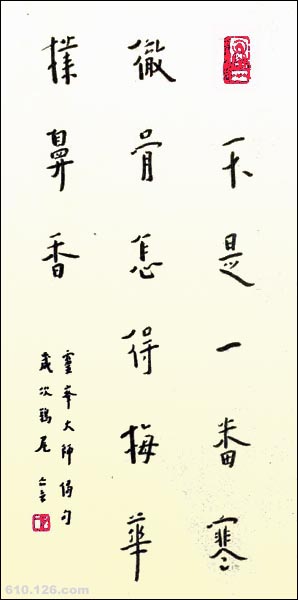 不是一番寒
徹骨怎得梅華
撲鼻香
靈峯大師偈句
歲次鶉尾
610.126.com